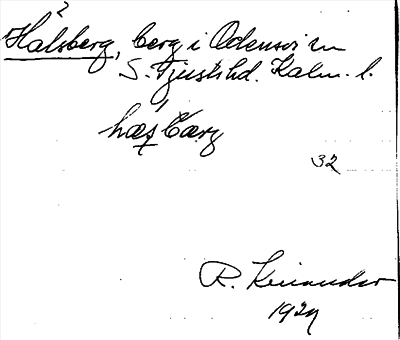 2
Hälsberg, berg i Odensvi sn
S. Tjusts hd. Kalm. l.
32
R. Kinander
1929